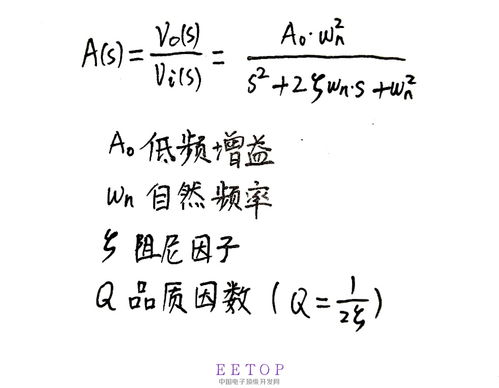 A(s) = Vo(s)/Vi(s) = A₀·ωn²/(s²+2ζωn·s+ωn²)
A₀ 低频增益
ωn 自然频率
ζ 阻尼因子
Q 品质因数 (Q = 1/2ζ)
EETOP
中国电子顶级开发网